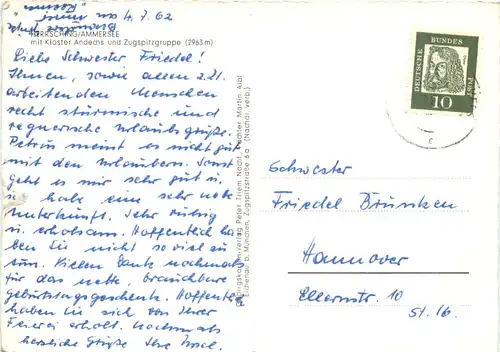 am 4.7.62
HERRSCHING/AMMERSEE
mit Kloster Andechs und Zugspitzgruppe (2963 m)
Liebe Schwester, Friedel!
Ihnen, sowie allen z.Zt.
arbeitenden Menschen
recht stürmische und
regnerische Urlaubsgrüße.
Petrus meint es nicht gut
mit den Urlaubern. Sonst
geht es mir sehr gut u.
u. habe eine sehr nette
Unterkunft. Sehr ruhig
u. erholsam. Hoffentlich ha-
ben Sie nicht so viel zu
tun. Vielen Dank nochmals
für das nette, brauchbare
Geburtstagsgeschenk. Hoffentlich
haben Sie sich von Ihrer
Feierei erholt. Nochmals
herzliche Grüße Ihre
Peter Triem Nachf. Pächter Martin Albl
Eichenau b. München, Zugspitzstraße 6a (Nachdr. verb.)
DEUTSCHE
BUNDES
POST
10
Schwester
Friedel Brünken
Hannover
Ellernstr. 10
St. 16.